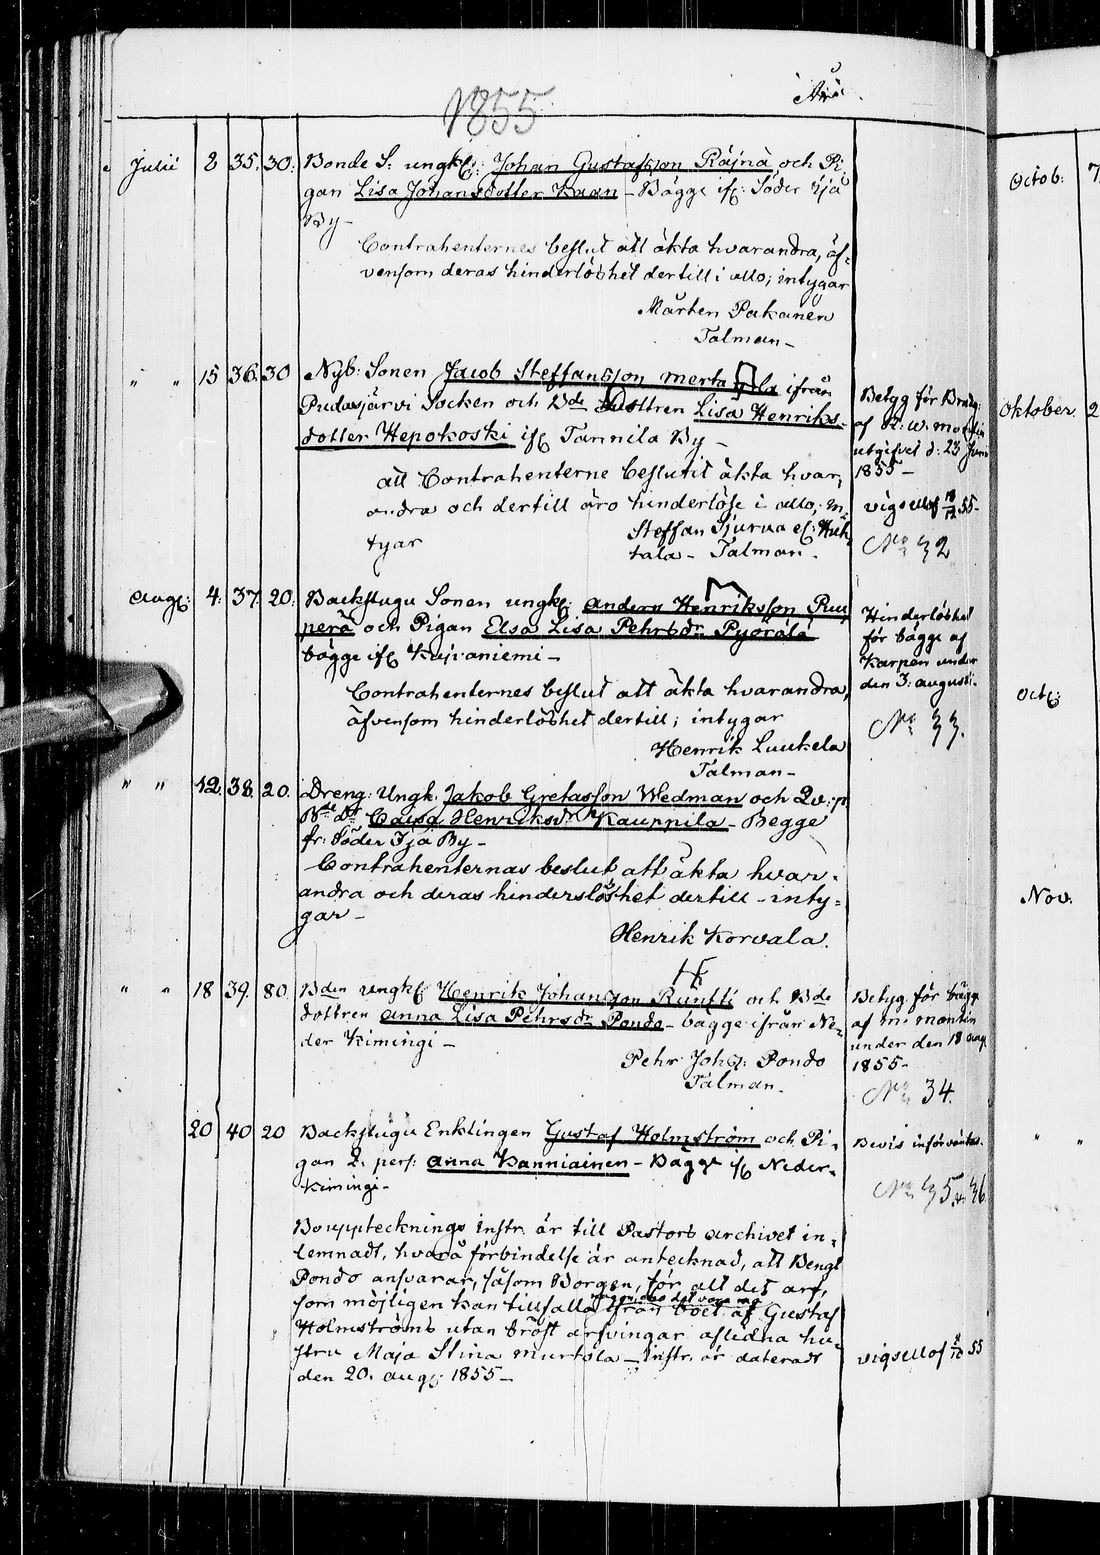 1855
År
Julii 8 35. 30. Bonde S: ungk: Johan Gustafsson Räinä och Pi-
gan Lisa Johansdotter Kaan - Bägge if: Söder Ijå
By -
Contrahenternes beslut att äkta hvarandra, äf-
vensom deras hinderlöshet dertill i allo, intygar
Mårten Pakanen
Talman -
" " 15 36. 30 Nyb: Sonen Jacob Steffansson ifrån
Pudasjärvi Socken och Bde dottren Lisa Henriks-
dotter Hepokoski if: Tannila By -
att Contrahenterne beslutit äkta hvar-
andra och dertill äro hinderlöse i allo, in-
tyar
Steffan Sjurua
tala - Talman.
Betyg för
utgifvet d: 23 Juni
1855 -
vigsell af 18/12 55 -
No 32
Aug: 4. 37. 20. Backstugu Sonen ungk: Anders Henriksson Ruu-
perä och Pigan Elsa Lisa Pehrsdr Pyörälä
bägge if: Karjaniemi -
Contrahenternes beslut att äkta hvarandra,
äfvensom hinderlöshet dertill; intygar
Henrik Luukela
Talman -
Hinderlöshet
för bägge af
Karpen under
den 3: augusti.
No 33.
" " 12. 38. 20. Dreng: Ungk. Jakob Gretasson Wedman och Qv: p.
Bde Dr Caisa Henriksdr Kauppila - Begge
fr: Söder Ijå By -
Contrahenternas beslut att äkta hvar-
andra och deras hinderslöshet dertill - inty-
gar -
Henrik Korvala.
" " 18 39. 80 Bden ungk: Henrik Johansson Runtti och Bde
dottren Anna Lisa Pehrsdr Pondo - bägge ifrån Ne-
der Kimingi -
Pehr Johs: Pondo
Talman.
Betyg för bägge
af M: Montin
under den 18 aug
1855 -
No 34.
20 40 20 Backstugu Enklingen Gustaf Holmström och Pi-
gan Q. pers: Anna Kanniainen - Bägge if: Neder-
Kimingi -
Bevis införväntas.
No 35 & 36
Bouppteckings Instr. är till Pastors archivet in-
lemnadt, hvarå förbindelse är antecknad, att Bengt
Pondo ansvarar, såsom Borgen, för allt det arf,
som möjligen kan tillfalla ifrån boet af Gustaf
Holmströms utan bröst arfvingar aflidna hu-
stru Maja Stina Murtola - Instr. är dateradt
den 20. aug: 1855 -
vigsell af 8/10 55
Octob: 7
Oktober. 2
Oct:
Nov.
" "